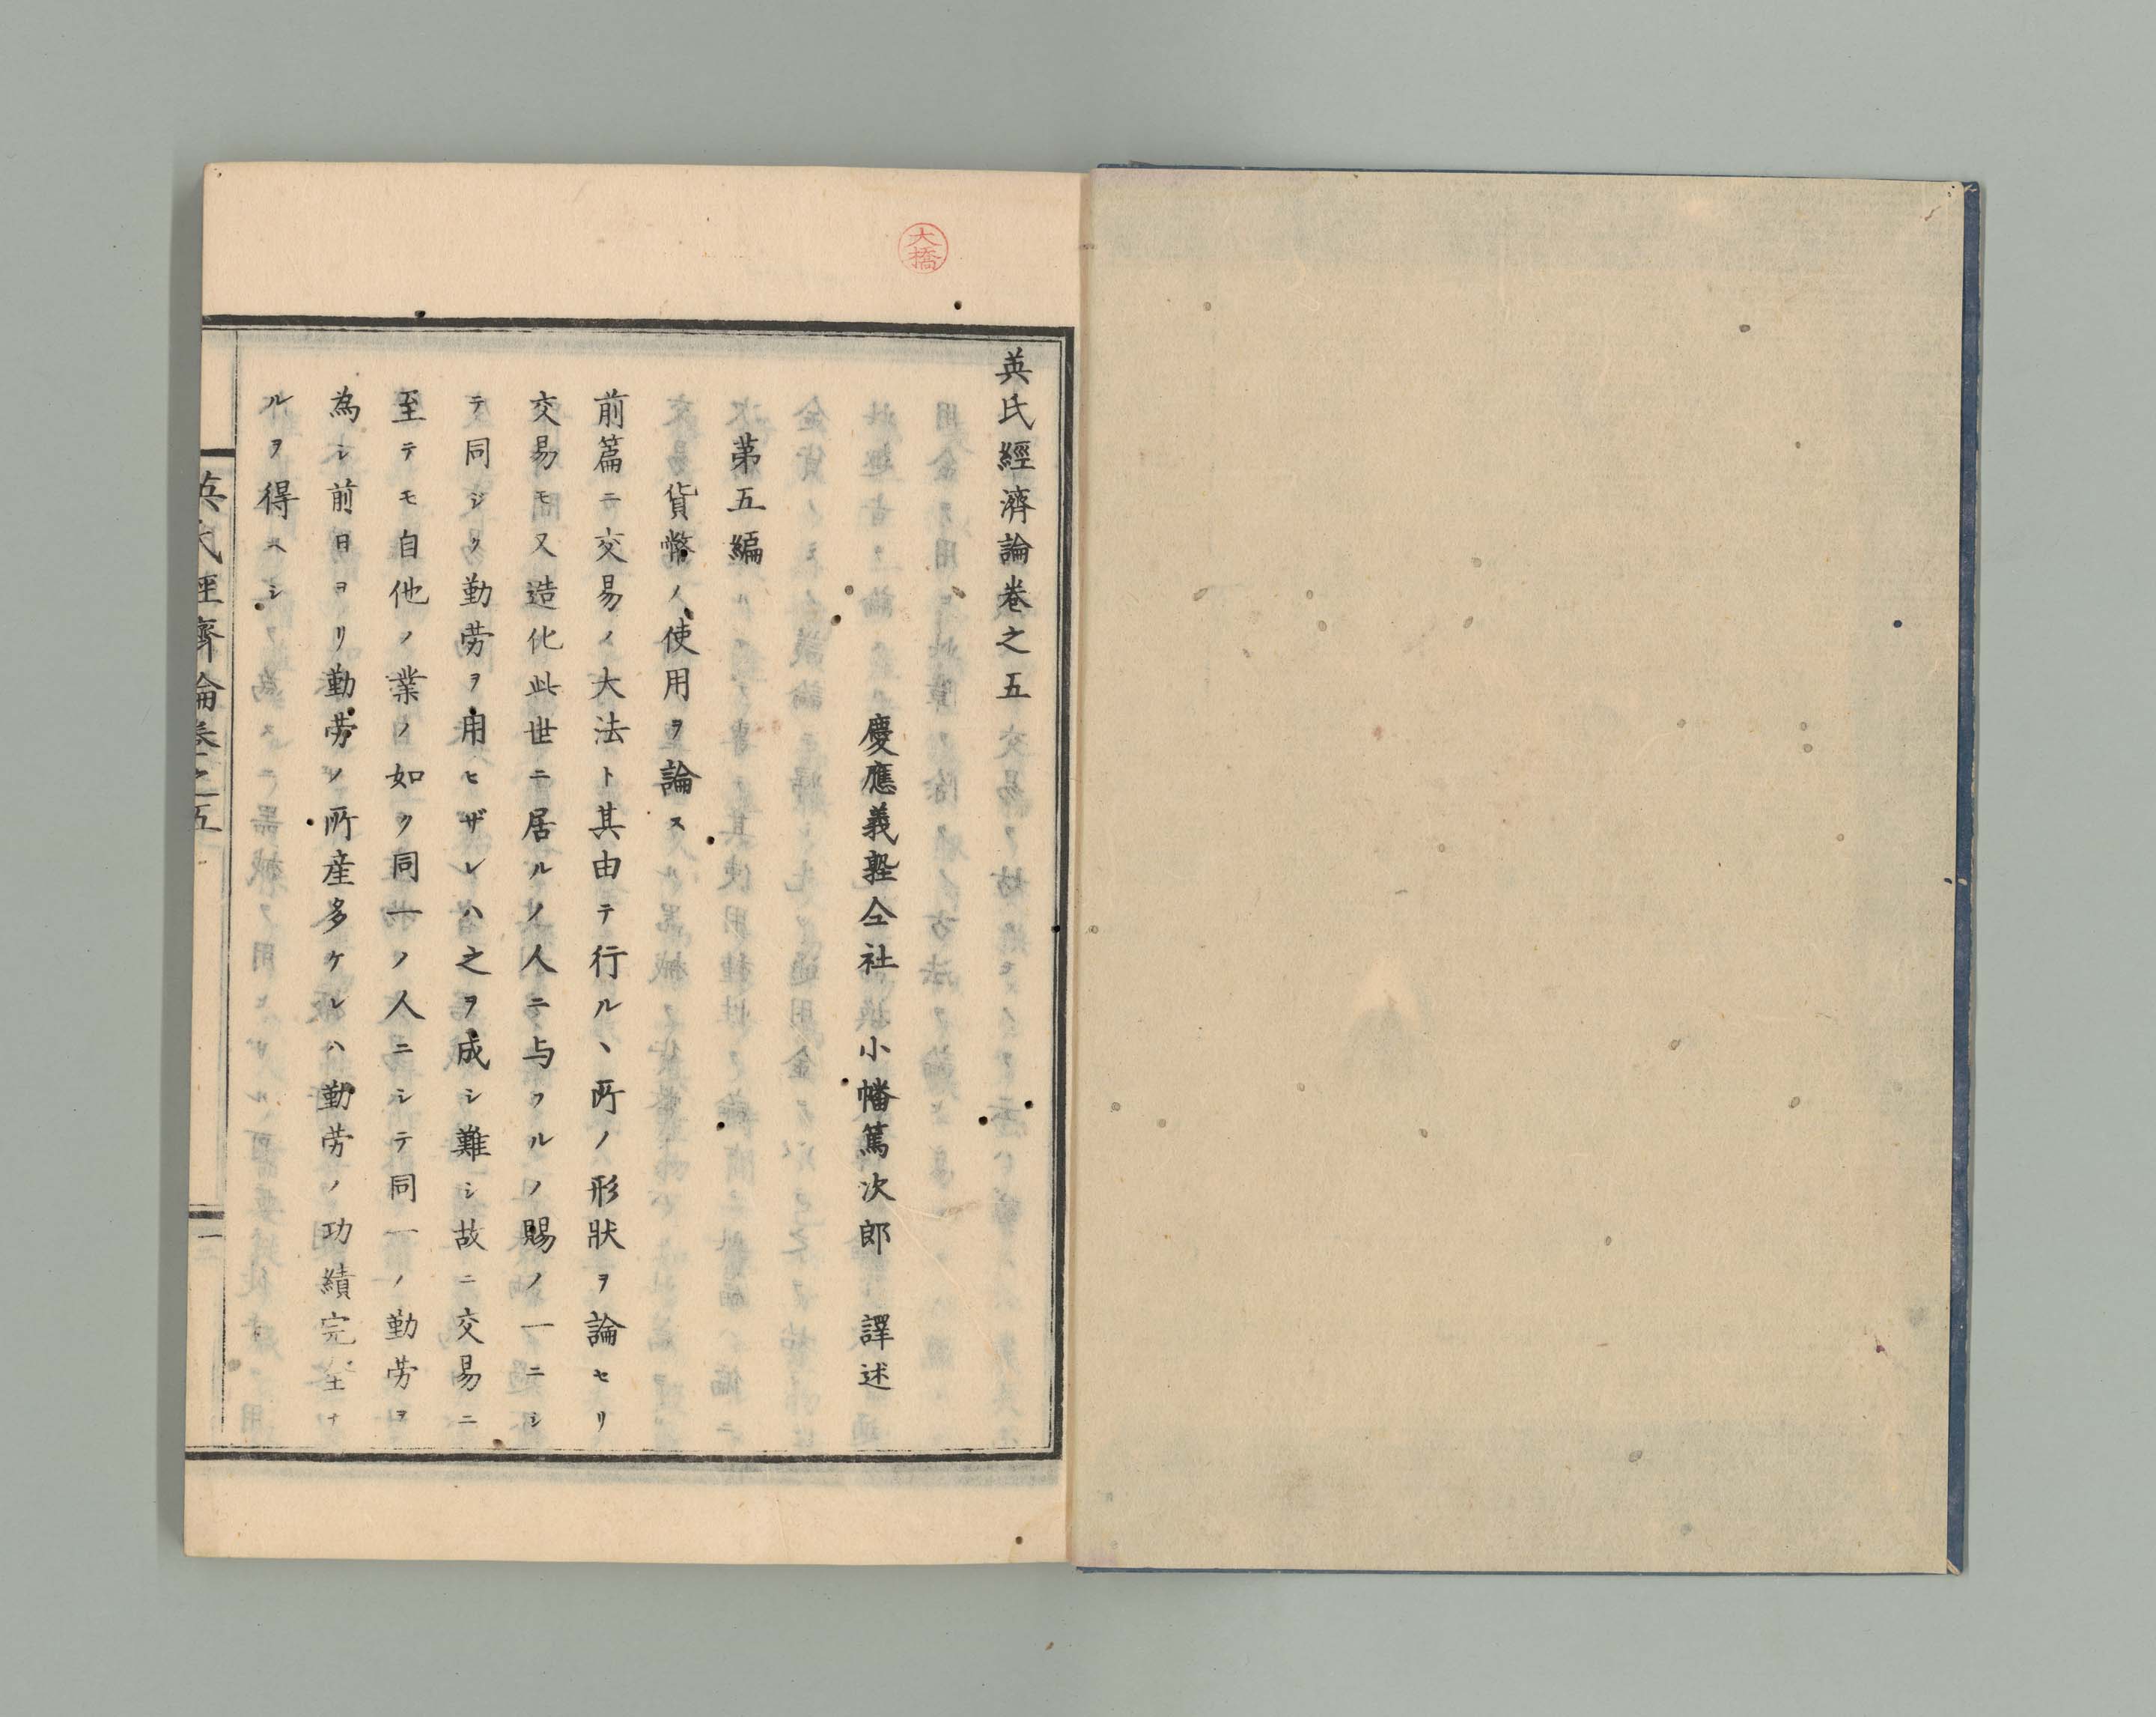 大橋
英氏經濟論卷之五
慶應義塾仝社 小幡篤次郎 譯述
第五編
貨幣ノ使用ヲ論ス
前篇ニ交易ノ大法ト其由テ行ルヽ所ノ形狀ヲ論セリ
交易モ又造化此世ニ居ルノ人ニ与フルノ賜ノ一ニシ
テ同ジク勤労ヲ用ヒザレハ之ヲ成シ難シ故ニ交易ニ
至テモ自他ノ業ノ如ク同一ノ人ニシテ同一ノ勤労ヲ
為シ前日ヨリ勤労ノ所産多ケレハ勤労ノ功績完全ナ
ルヲ得ヘシ
英氏經濟論卷之五
一